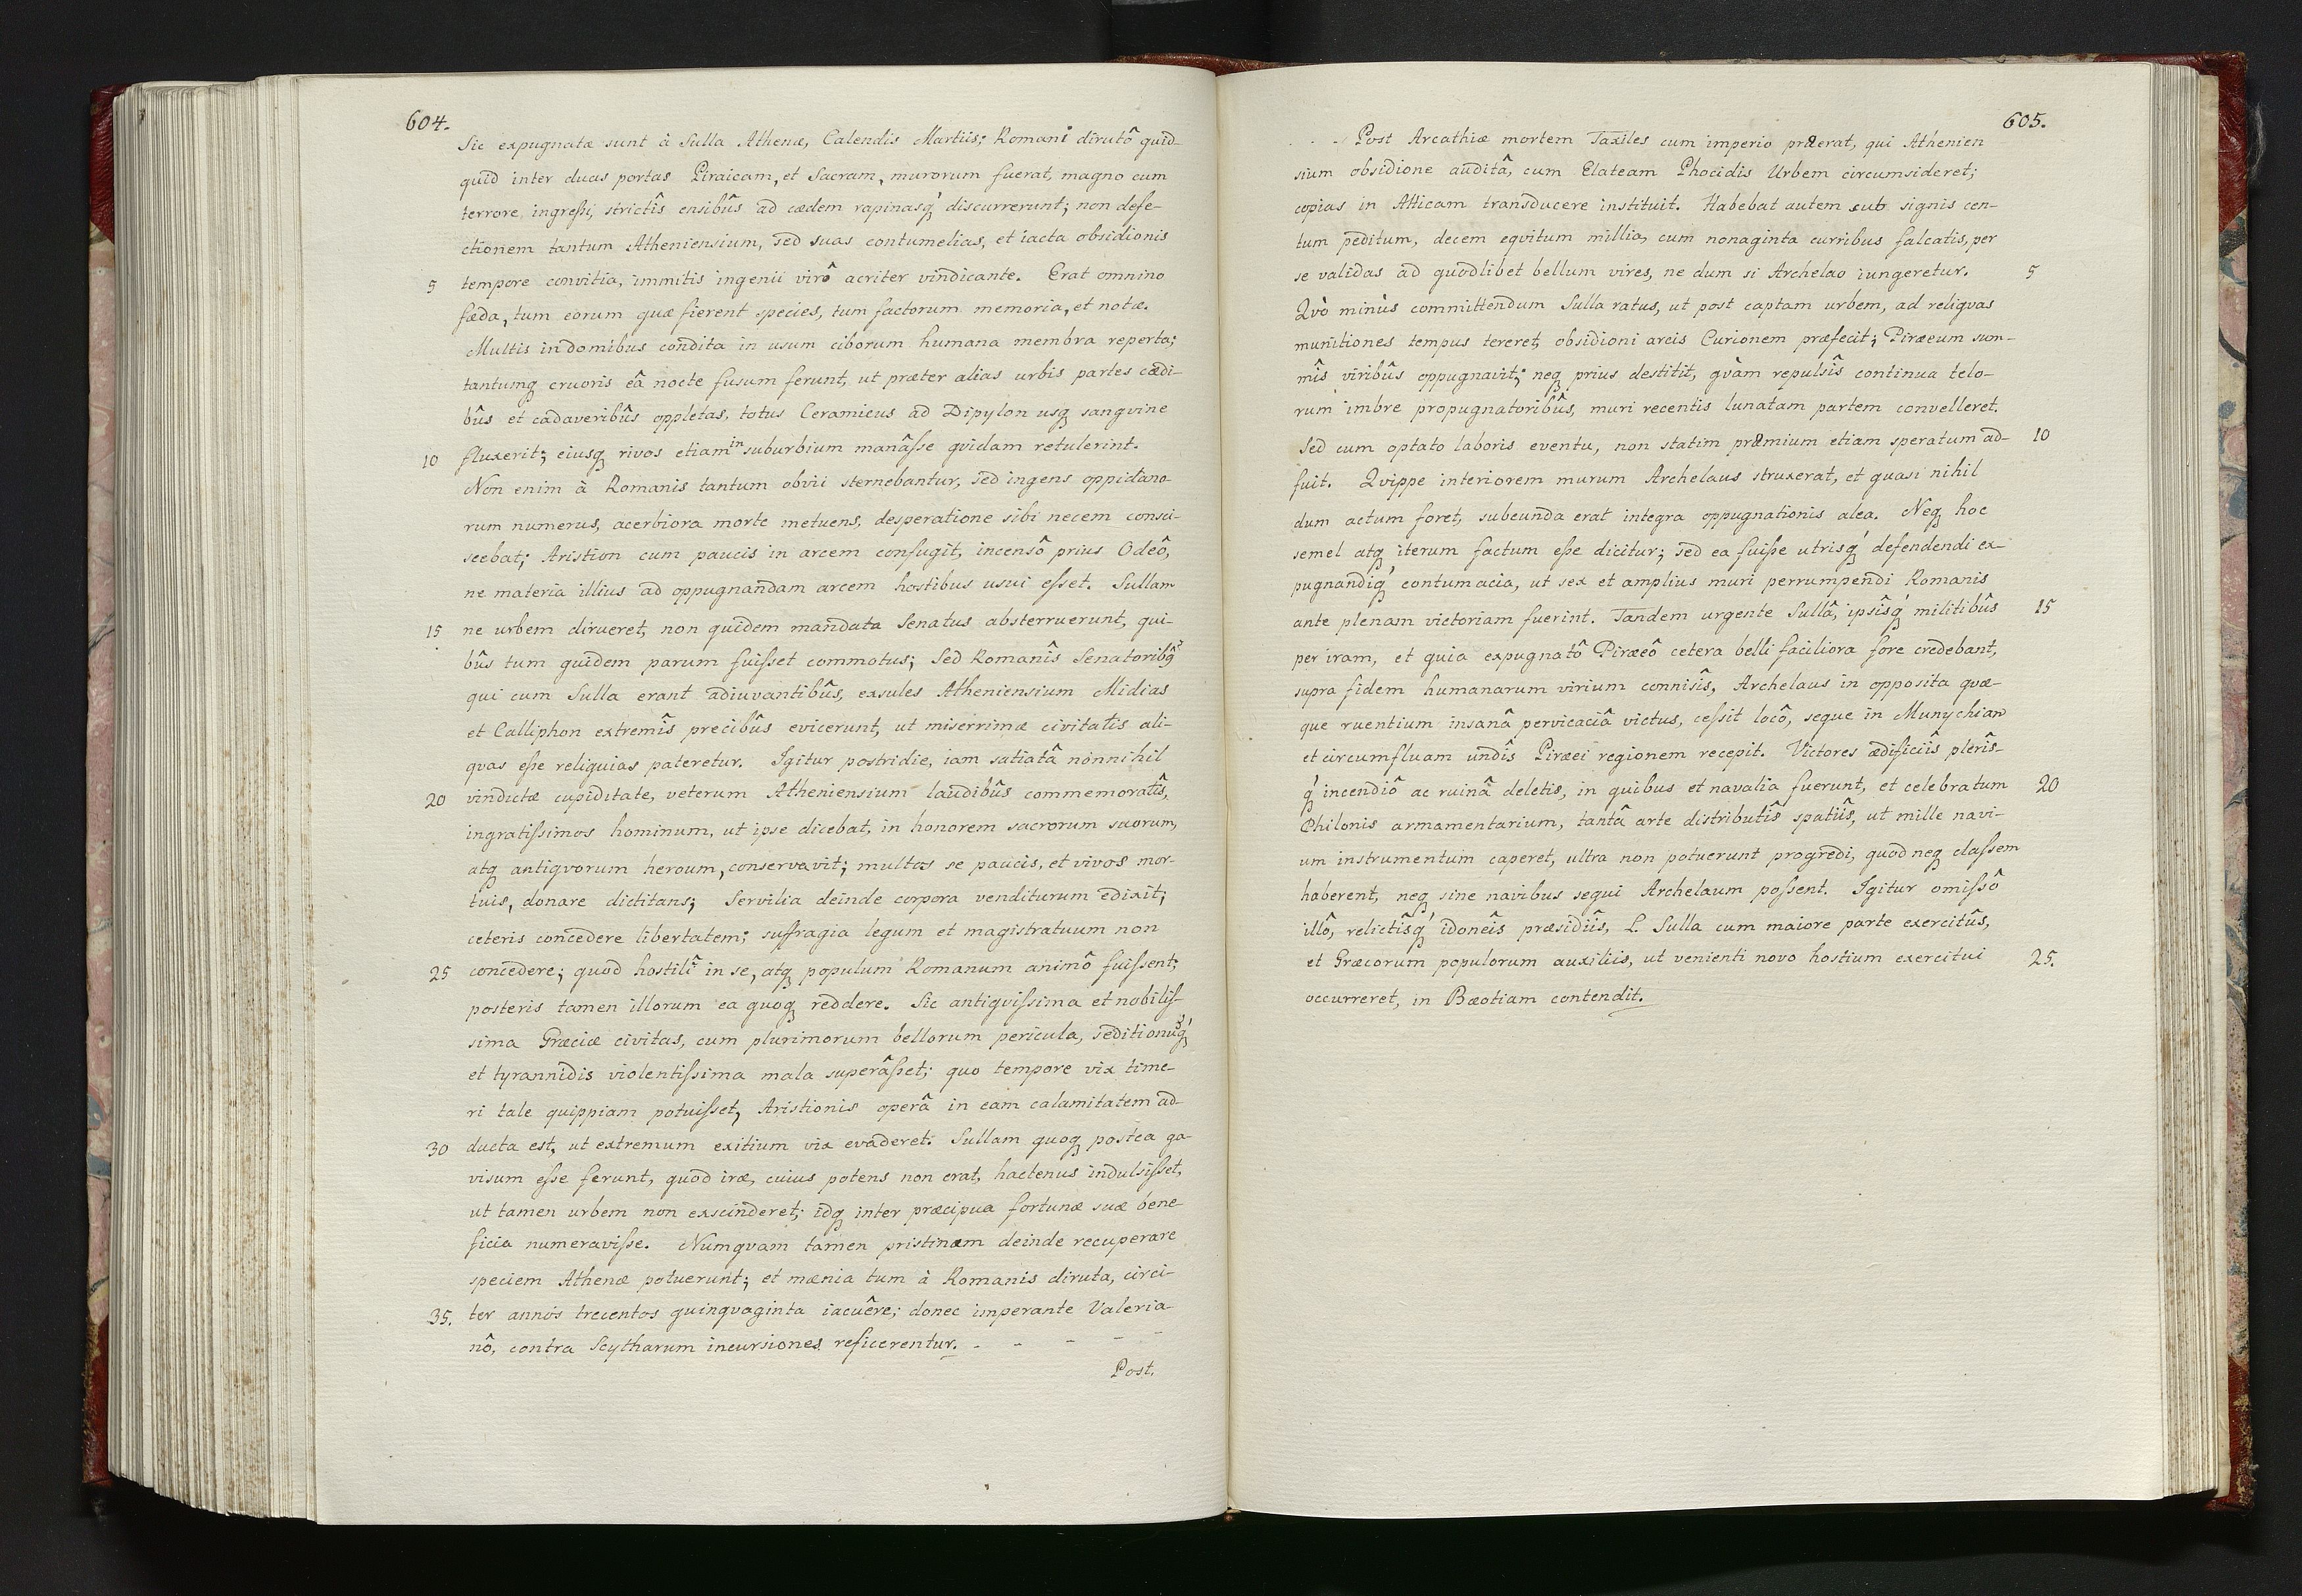 604.
Sic expugnatæ sunt à Sulla Athenæ, Calendis Martiis; Romani dirutô quid-
quid inter duas portas Piraicam, et Sacram, murorum fuerat, magno cum
terrore ingreſsi, strictîs ensibûs ad cædem rapinasq́ discurrerunt; non defe-
ctionem tantum Atheniensium, sed suas contumelias, et iacta obsidionis
5 tempore convitia, immitis ingenii virô acriter vindicante. Erat omnino
fæda, tum eorum quæ fierent species, tum factorum memoria, et notæ.
Multis in domibus condita in usum ciborum humana membra reperta;
tantumq cruoris eâ nocte fusum ferunt, ut præter alias urbis partes cædi-
bûs et cadaveribûs oppletas, totus Ceramicus ad Dipylon usq sangvine
10 fluxerit; eiusq rivos etiam in suburbium manâſse qvidam retulerint.
Non enim à Romanis tantum obvii sternebantur, sed ingens oppidano-
rum numerus, acerbiora morte metuens, desperatione sibi necem consci-
scebat; Aristion cum paucis in arcem confugit, incensô prius Odeô,
ne materia illius ad oppugnandam arcem hostibus usui eſset. Sullam
15 ne urbem dirueret, non quidem mandata Senatus absterruerunt, qui-
bûs tum quidem parum fuiſset commotus; Sed Romanîs Senatoribq̂
qui cum Sulla erant adiuvantibûs, exsules Atheniensium Midias
et Calliphon extremîs precibûs evicerunt, ut miserrimæ civitatis ali-
quas eſse reliquias pateretur. Igitur postridie, iam satiatâ nonnihil
20 vindictæ cupiditate, veterum Atheniensium laudibûs commemoratîs,
ingratiſsimos hominum, ut ipse dicebat, in honorem sacrorum suorum,
atq antiqvorum heroum, conservavit; multos se paucis, et vivos mor-
tuis, donare dictitans; Servilia deinde corpora venditurum edixit;
ceteris concedere libertatem; suffragia legum et magistratuum non
25 concedere; quod hostilî in se, atq populum Romanum animô fuiſsent;
posteris tamen illorum ea quoq reddere. Sic antiqviſsima et nobiliſ-
sima Græciæ civitas, cum plurimorum bellorum pericula, seditionusq́
et tyrannidis violentiſsima mala superâſset; quo tempore vix time-
ri tale quippiam potuiſset, Aristionis operâ in eam calamitatem ad-
30 ducta est, ut extremum exitium vix evaderet. Sullam quoq postea ga-
visum eſse ferunt, quod iræ, cuius potens non erat, hactenus indulsiſset,
ut tamen urbem non exscinderet; idq inter præcipua fortunæ suæ bene-
ficia numeraviſse. Numqvam tamen pristinam deinde recuperare
speciem Athenæ potuerunt; et mænia tum à Romanis diruta, circi-
35. ter annos trecentos quinqvaginta iacuêre; donec imperante Valeria-
nô, contra Scytharum incursiones reficerentur. - - - - -
Post.
605.
. . . Post Arcathiæ mortem Taxiles cum imperio præerat, qui Athenien
sium obsidione auditâ, cum Elateam Phocidis Urbem circumsideret;
copias in Atticam transducere instituit. Habebat autem sub signis cen-
tum peditum, decem eqvitum millia, cum nonaginta curribus falcatis, per
se validas ad quodlibet bellum vires, ne dum si Archelao iungeretur. 5
Qvò minùs committendum Sulla ratus, ut post captam urbem, ad reliqvas
munitiones tempus tereret, obsidioni arcis Curionem præfecit; Piræeum sum-
mîs viribûs oppugnavit; neq prius destitit, qvàm repulsîs continua telo-
rum imbre propugnatoribûs, muri recentis lunatam partem convelleret.
Sed cum optato laboris eventu, non statim præmium etiam speratum ad- 10
fuit. Qvippe interiorem murum Archelaus struxerat, et quasi nihil
dum actum foret, subeunda erat integra oppugnationis alea. Neq hoc
semel atq iterum factum eſse dicitur; sed ea fuiſse utrisq́ defendendi ex-
pugnandiq́ contumacia, ut sex et amplius muri perrumpendi Romanis
ante plenam victoriam fuerint. Tandem urgente Sullâ, ipsîsq́ militibûs 15
per iram, et quia expugnatô Piræeô cetera belli faciliora fore credebant,
supra fidem humanarum virium connisîs, Archelaus in opposita quæ-
que ruentium insanâ pervicaciâ victus, ceſsit locô, seque in Munychian
et circumfluam undîs Piræei regionem recepit. Victores ædificiîs plerîs-
q́ incendiô ac ruinâ deletis, in quibus et navalia fuerunt, et celebratum 20
Philonis armamentarium, tantâ arte distributîs spatiîs, ut mille navi-
um instrumentum caperet, ultra non potuerunt progredi, quod neq claſsem
haberent, neq sine navibus sequi Archelaum poſsent. Igitur omiſsô
illô, relictîsq́ idoneîs præsidiîs, L. Sulla cum maiore parte exercitûs,
et Græcorum populorum auxiliis, ut venienti novo hostium exercitui 25.
occurreret, in Bæotiam contendit.